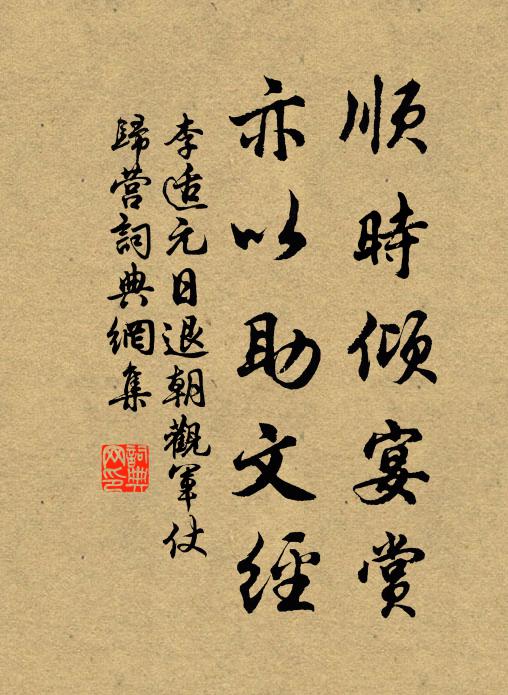 順時傾宴賞
亦以助文經
李适元日退朝觀軍仗
歸營詞典網集
詞典
网印